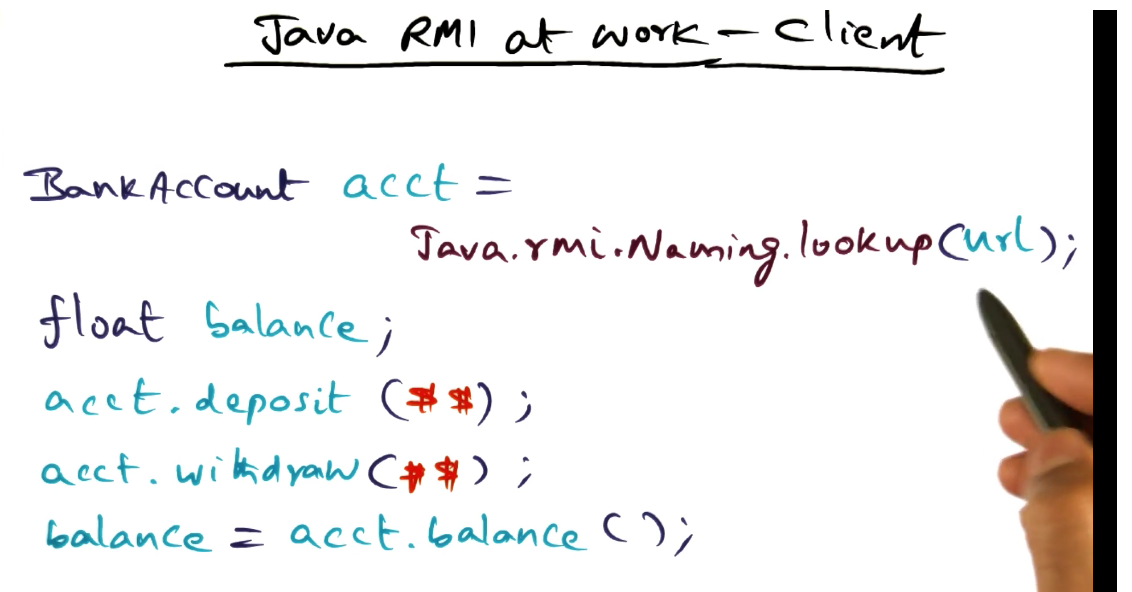 Java RMI at work - Client
BankAccount acct =
Java.rmi.Naming.lookup(url);
float balance;
acct.deposit ($$);
acct.withdraw($$);
balance = acct.balance();